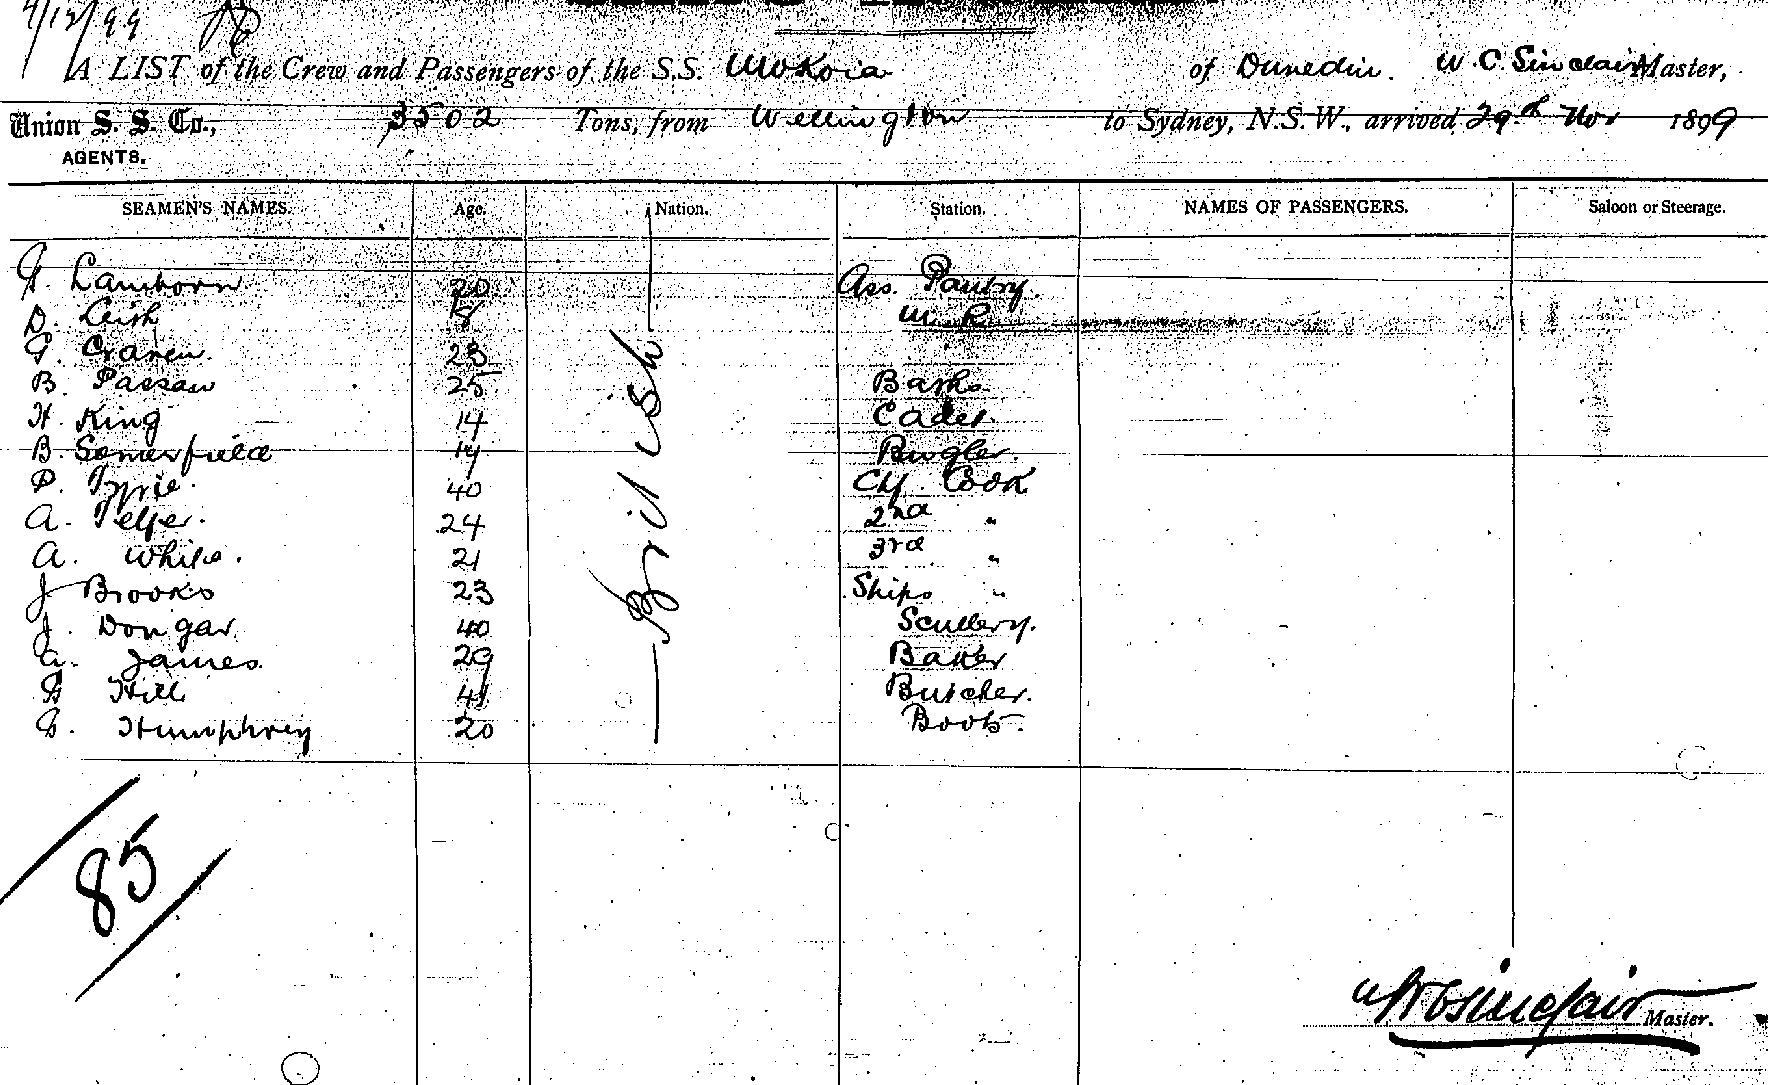 4/12/99
A LIST of the Crew and Passengers of the S.S. Mokoia of Dunedin. W. C. Sinclair Master,
Union S. S. Co., 3502 Tons, from Wellington to Sydney, N.S.W., arrived 29th Nov 1899
AGENTS.
SEAMEN'S NAMES. Age. Nation. Station. NAMES OF PASSENGERS. Saloon or Steerage.
Lamborn 20 Ass. Pantry.
D. Leish 18
G. Craven. 23
B. Passaw 25 Baths
H. King 14 Cadet.
B. Somerfield 14 Bugler.
P. Pyrie. 40 Ch. Cook
A. Telfer. 24 2nd "
A. White. 21 3rd "
J Brooks 23 Ships "
J. Dongar 40 Scullery.
A. James. 29 Baker
H Hill 41 Butcher.
G. Humphrey 20 Boots.
British
85
W C Sinclair Master.